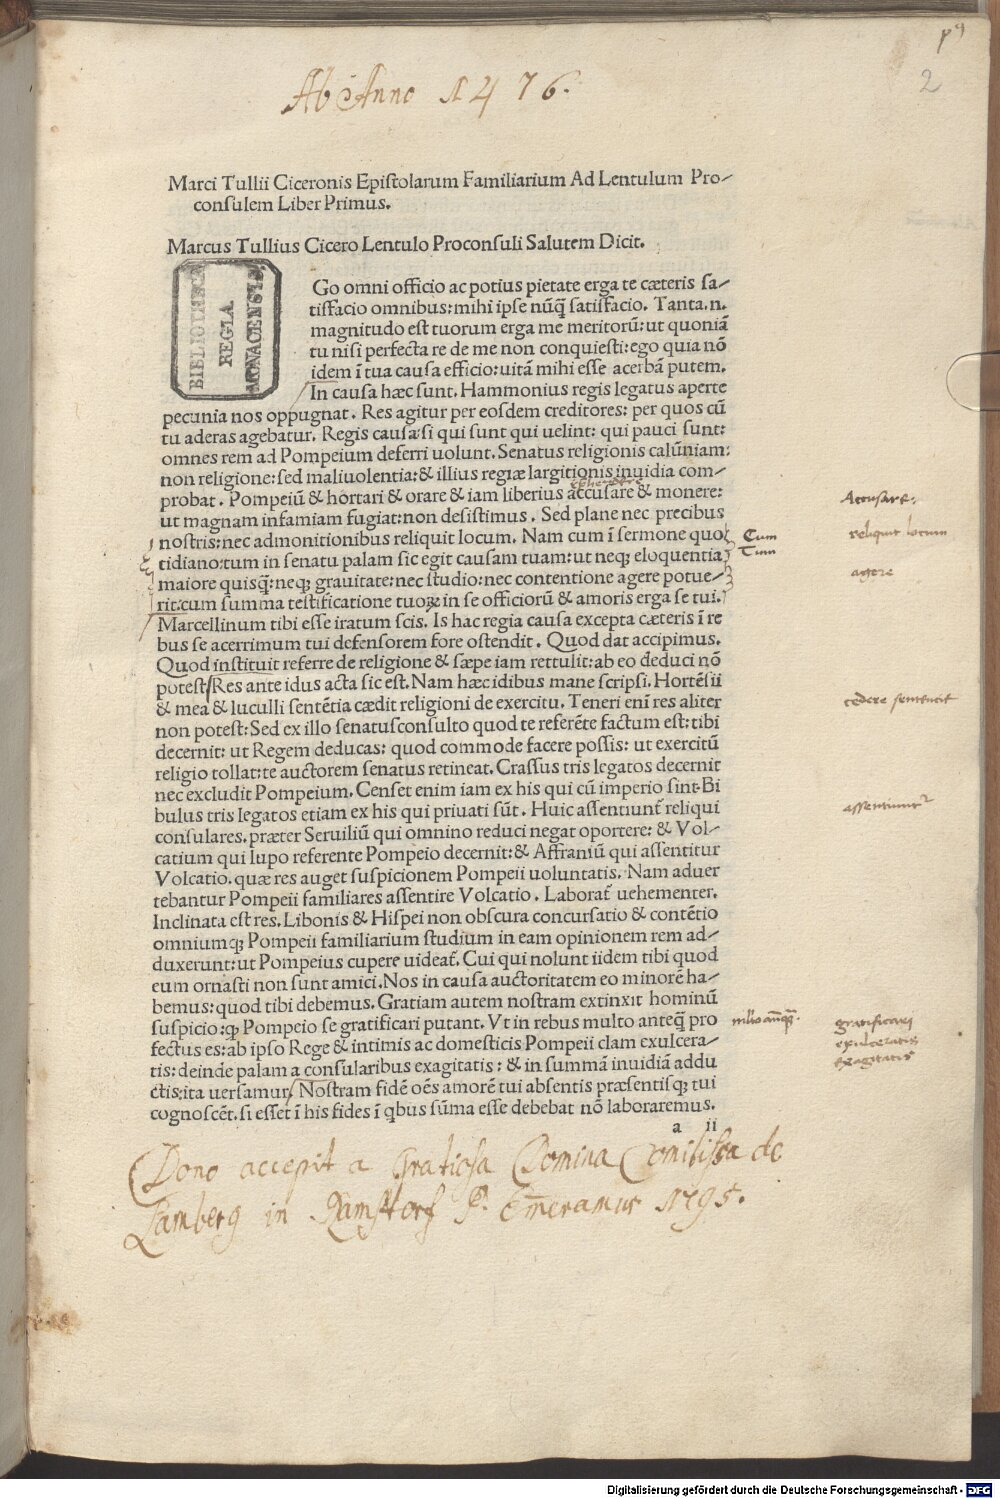 2
Ab Anno 1476.
Marci Tullii Ciceronis Epistolarum Familiarium Ad Lentulum Pro-
consulem Liber Primus.
Marcus Tullius Cicero Lentulo Proconsuli Salutem Dicit.
BIBLIOTHECA
REGIA
MONACENSIS.
Go omni officio ac potius pietate erga te cæteris sa-
tisfacio omnibus: mihi ipse nūq̄ satisfacio. Tanta.n.
magnitudo est tuorum erga me meritorū: ut quoniā
tu nisi perfecta re de me non conquiesti: ego quia nō
idem ī tua causa efficio: uitā mihi esse acerbā putem.
In causa hæc sunt. Hammonius regis legatus aperte
pecunia nos oppugnat. Res agitur per eosdem creditores: per quos cū
tu aderas agebatur. Regis causa: si qui sunt qui uelint: qui pauci sunt:
omnes rem ad Pompeium deferri uolunt. Senatus religionis calūniam:
non religione: sed maliuolentia: & illius regiæ largitionis inuidia com-
probat. Pompeiū & hortari & orare & iam liberius accusare & monere:
ut magnam infamiam fugiat: non desistimus. Sed plane nec precibus
nostris: nec admonitionibus reliquit locum. Nam cum ī sermone quo
tidiano: tum in senatu palam sic egit causam tuam: ut neq; eloquentia
maiore quisq̄: neq; grauitate: nec studio: nec contentione agere potue-
rit: cum summa testificatione tuoꝝ in se officiorū & amoris erga se tui.
Marcellinum tibi esse iratum scis. Is hac regia causa excepta cæteris ī re
bus se acerrimum tui defensorem fore ostendit. Quod dat accipimus.
Quod instituit referre de religione & sæpe iam rettulit: ab eo deduci nō
potest. Res ante idus acta sic est. Nam hæc idibus mane scripsi. Hortēsii
& mea & luculli sentētia cædit religioni de exercitu. Teneri enī res aliter
non potest: Sed ex illo senatusconsulto quod te referēte factum est: tibi
decernit: ut Regem deducas: quod commode facere possis: ut exercitū
religio tollat: te auctorem senatus retineat. Crassus tris legatos decernit
nec excludit Pompeium. Censet enim iam ex his qui cū imperio sint. Bi
bulus tris legatos etiam ex his qui priuati sūt. Huic assentiunt̄ reliqui
consulares. præter Seruiliū qui omnino reduci negat oportere: & Vol-
catium qui lupo referente Pompeio decernit: & Affraniū qui assentitur
Volcatio. quæ res auget suspicionem Pompeii uoluntatis. Nam aduer
tebantur Pompeii familiares assentire Volcatio. Laborat̄ uehementer.
Inclinata est res. Libonis & Hispei non obscura concursatio & contētio
omniumq; Pompeii familiarium studium in eam opinionem rem ad-
duxerunt: ut Pompeius cupere uideat̄. Cui qui nolunt iidem tibi quod
eum ornasti non sunt amici. Nos in causa auctoritatem eo minorē ha-
bemus: quod tibi debemus. Gratiam autem nostram extinxit hominū
suspicio: ꝙ Pompeio se gratificari putant. Vt in rebus multo anteq̄ pro
fectus es: ab ipso Rege & intimis ac domesticis Pompeii clam exulcera-
tis: deinde palam a consularibus exagitatis: & in summā inuidiā addu
ctis: ita uersamur. Nostram fidē oēs amorē tui absentis præsentisq; tui
cognoscēt. si esset ī his fides ī qbus sūma esse debebat nō laboraremus.
a ii
Accusare.
reliquit locum
Cum
Tum
agere
cedere sententie
assentiunt̄
gratificari
exulceratis
exagitatis
Dono accepit a Gratiosa Domina Comitissa de
Lamberg in Ramstorf P. Emeramus 1795.
Digitalisierung gefördert durch die Deutsche Forschungsgemeinschaft - DFG